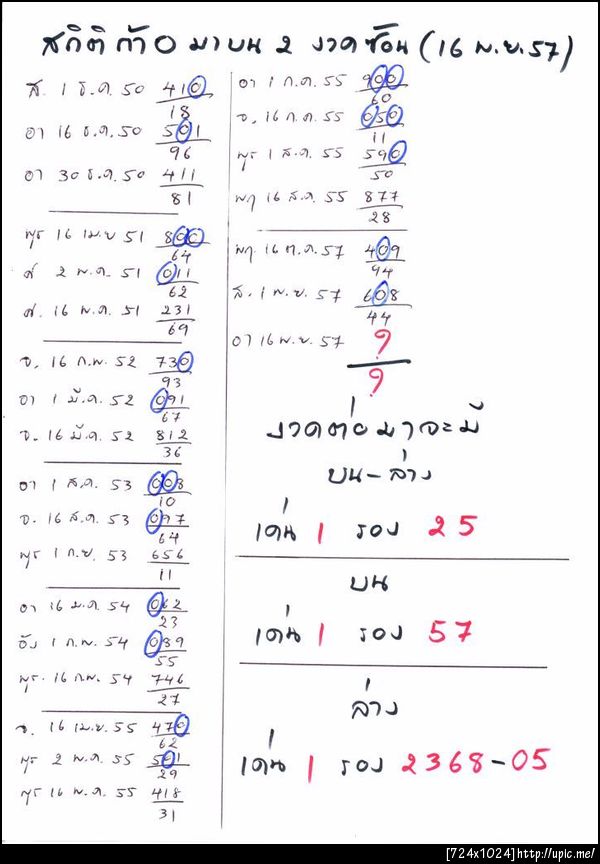 สถิติถ้า 0 มาบน 2 งวดซ้อน (16 พ.ย. 57)
ส. 1 ธ.ค. 50 410
18
อา 16 ธ.ค. 50 501
96
อา 30 ธ.ค. 50 411
81
พุธ 16 เม.ย 51 800
64
ศ 2 พ.ค. 51 011
62
ศ. 16 พ.ค. 51 231
69
จ. 16 ก.พ. 52 730
93
อา 1 มี.ค. 52 091
67
จ. 16 มี.ค. 52 812
36
อา 1 ส.ค. 53 008
10
จ. 16 ส.ค. 53 097
64
พุธ 1 ก.ย. 53 656
11
อา 16 ม.ค. 54 062
23
อัง 1 ก.พ. 54 039
55
พุธ. 16 ก.พ. 54 746
27
จ. 16 เม.ย. 55 470
62
พุธ 2 พ.ค. 55 501
29
พุธ 16 พ.ค. 55 418
31
อา 1 ก.ค. 55 900
60
จ. 16 ก.ค. 55 050
11
พุธ 1 ส.ค. 55 590
50
พฤ 16 ส.ค. 55 877
28
พฤ 16 ต.ค. 57 409
94
ส. 1 พ.ย. 57 608
44
อา 16 พ.ย. 57 ?
?
งวดต่อมาจะมี
บน-ล่าง
เด่น 1 รอง 25
บน
เด่น 1 รอง 57
ล่าง
เด่น 1 รอง 2368-05
[724x1024]http://upic.me/